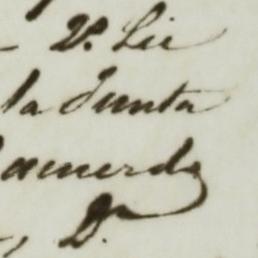 2º. Lic
la Junta
acuerdo
, D.